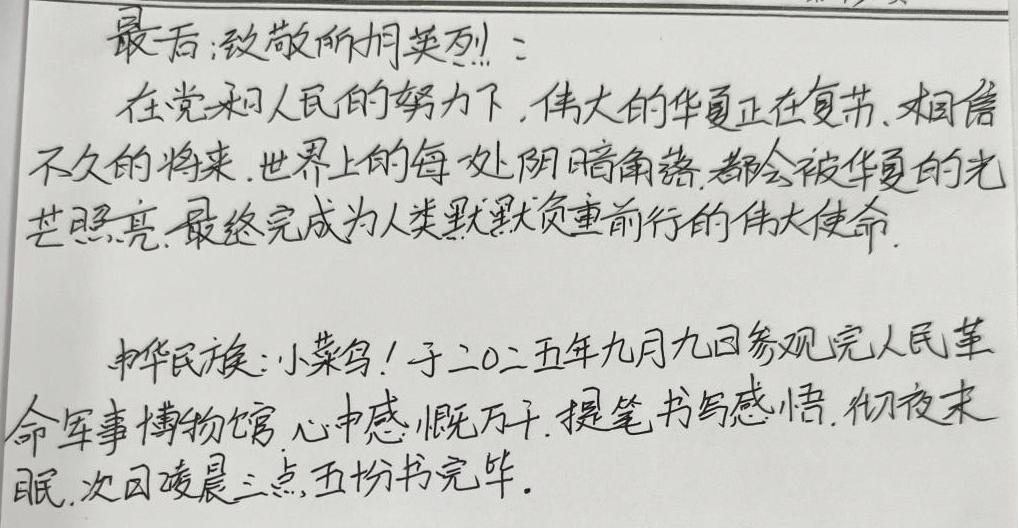 最后;致敬所有英烈:
在党和人民的努力下,伟大的华夏正在复苏、相信
不久的将来.世界上的每一处阴暗角落.都会被华夏的光
芒照亮.最终完成为人类默默负重前行的伟大使命.
中华民族:小菜鸟!于二〇二五年九月九日参观完人民革
命军事博物馆.心中感慨万千.提笔书写感悟.彻夜未
眠.次日凌晨三点五十分书完毕.